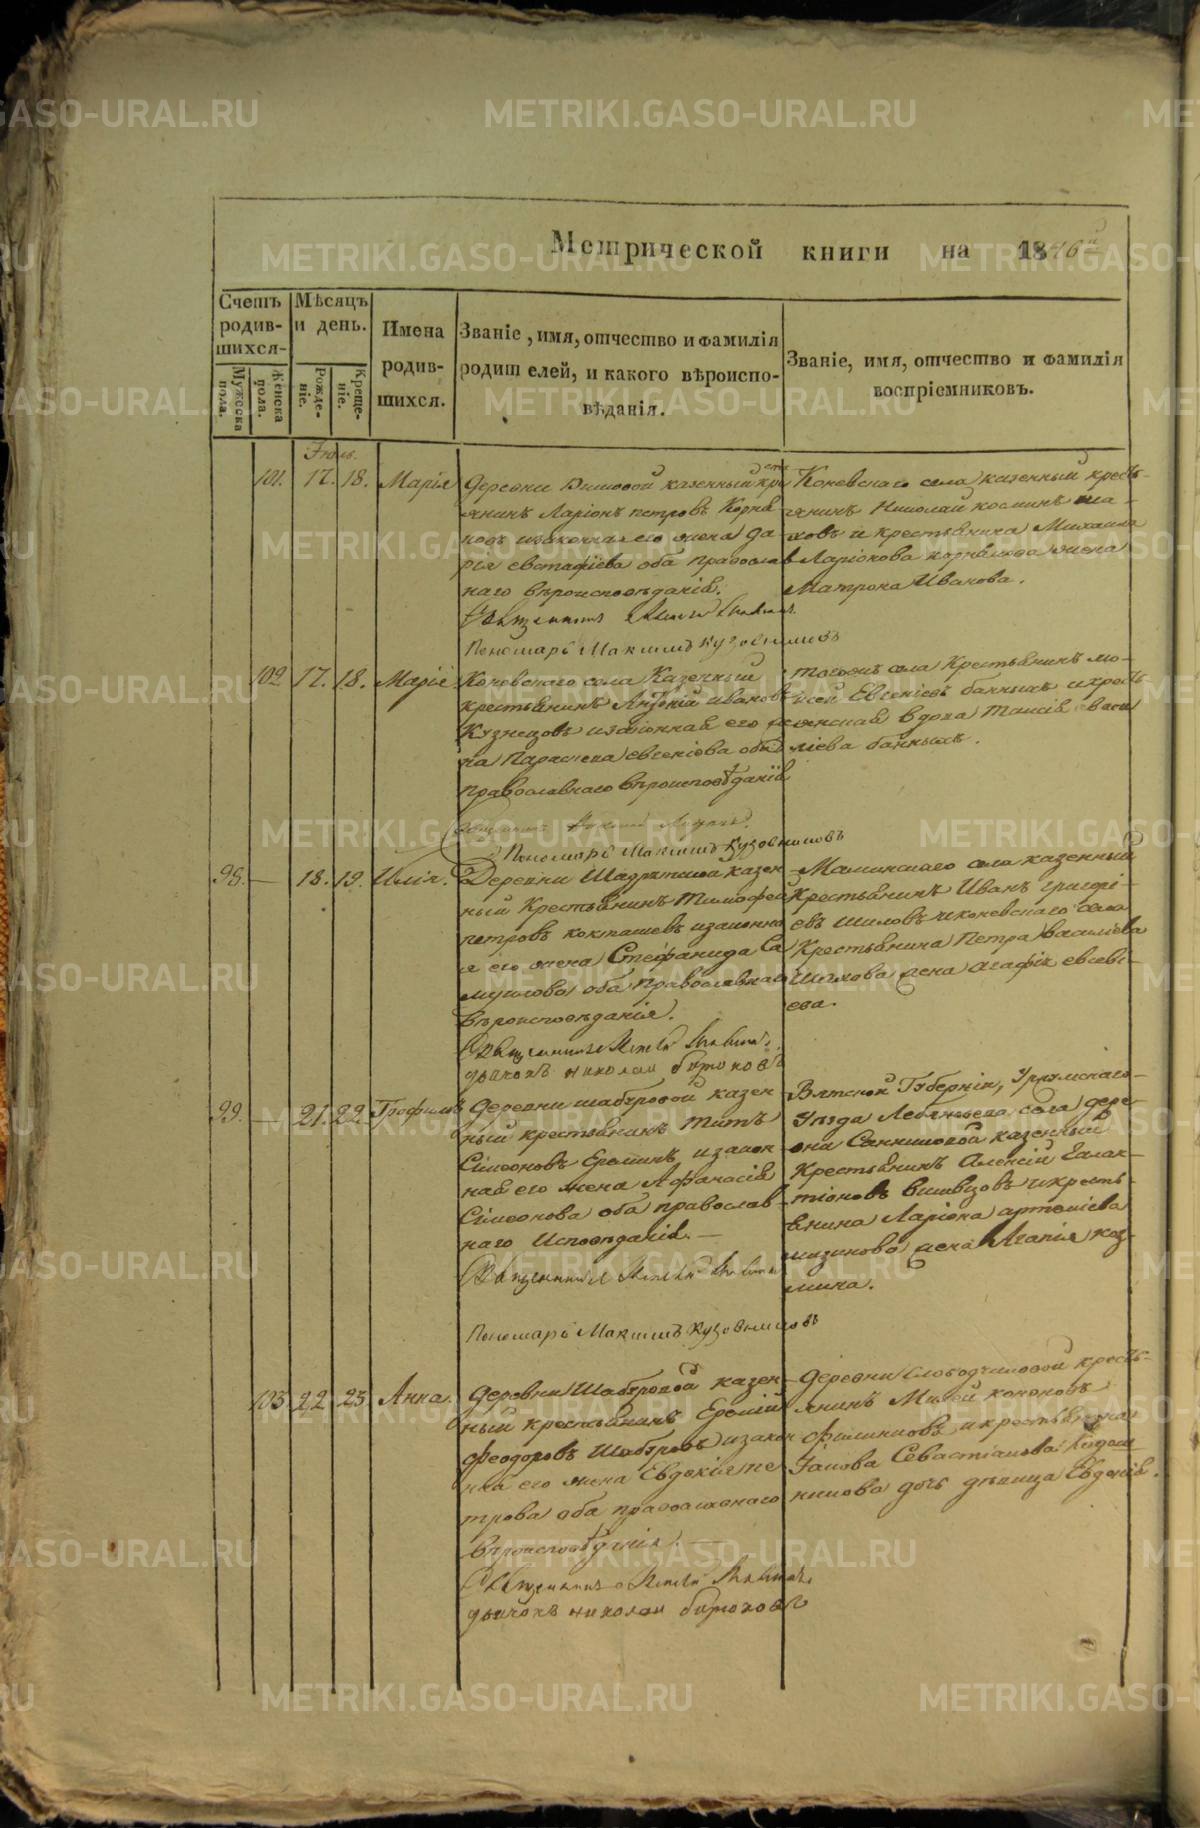 Метрической книги на 1846й
Счетъ родив-шихся.
Мѣсяцъ и день.
Имена родив-шихся.
Званіе, имя, отчество и фамилія родителей, и какого вѣроиспо-вѣданія.
Званіе, имя, отчество и фамилія воспріемниковъ.
Мужеска пола.
Женска пола.
Рожде-ніе.
Креще-ніе.
Іюль.
101. 17. 18. Марія
Деревни казенный кре
янинъ Ларіонъ петровъ Корни
законная его жена Да
рія евстафіева оба православ
наго вѣроисповѣданія.
Священникъ
Пономарь Максимъ Кузовниковъ
Коневскаго села казенный кресть-
янинъ Николай косминъ ша-
ховъ и крестьянина Михаила
Ларіонова жена
Матрона Иванова.
102 17. 18. Марія
Коневскаго села Казенный
крестьянинъ Антоній ивановъ
Кузнецовъ изаконная его же
на Параскева евгеніова оба
православнаго вѣроисповѣданія
Священникъ
Пономарь Максимъ Кузовниковъ
тогожъ села Крестьянинъ мо-
исей Евгеніевъ банныхъ икресть
янская вдова Таисія васи
ліева банныхъ.
98. — 18. 19. Илія.
Деревни казен
ный Крестьянинъ Тимофей
петровъ кокшаевъ изаконна
я его жена Стефанида Са
муилова оба Православнаго
вѣроисповѣданія.
Священникъ
дьячокъ николай бирюковъ
Маминскаго села казенный
Крестьянинъ Иванъ григорі-
евъ шиловъ иконевскаго села
Крестьянина Петра василіева
Шихова жена Агафія евсеві-
ева.
99. — 21. 22. Трофимъ
Деревни шабуровой казен
ный крестьянинъ Титъ
Сімеоновъ Ереминъ изакон
ная его жена Афанасія
Сімеонова оба православ-
наго Исповѣданія. —
Священникъ
Пономарь Максимъ Кузовниковъ
Вятской Губерніи, Уржумскаго
Уѣзда Лебяжьева села дере
вни казенный
Крестьянинъ Алексій Галак-
тіоновъ икресть-
янина Ларіона артеміева
мизинова жена Агапія коз-
мина.
103 22 23 Анна.
Деревни Шабуровой казен-
ный крестьянинъ Еремій
феодоровъ Шабуровъ изакон
ная его жена Евдокія пе
трова оба православнаго
вѣроисповѣданія. —
Священникъ
дьячокъ николай бирюковъ
деревни Слободчиковой кресть-
янинъ кононовъ
филиповъ икрестьянина
Іакова Севастіанова
никова дочь дѣвица Евдокія.
METRIKI.GASO-URAL.RU